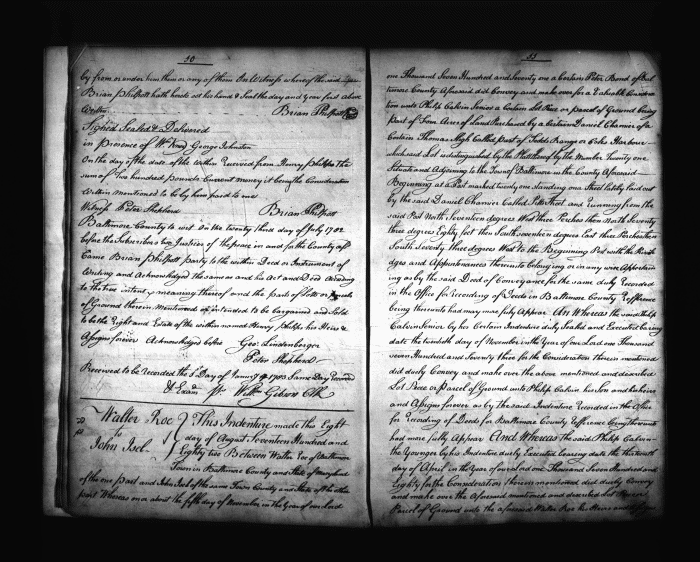 50
by from or under him them or any of them In Witness whereof the said
Brian Philpott hath hereto set his hand & Seal the day and year first above
Written Brian Philpott
Signed Sealed & Delivered
in presence of Wm Young George Johnston
On the day of the date of the within received from Henry Philips the
sum of Two hundred Pounds Current money it being the Consideration
Within mentioned to be by him paid to me
Witness Peter Shepherd Brian Philpott
Baltimore County to wit. On the twenty third day of July 1782
before the Subscribers two Justices of the peace in and for the County afsd
Came Brian Philpott party to the within Deed or Instrument of
Writing and Acknowledged the same as and his Act and Deed according
to the true intent & meaning thereof and the parts of Lotts or
of Ground therein Mentioned & intended to be bargained and Sold
to be the Right and Estate of the within named Henry Philips his Heirs &
Assigns forever Acknowledged before Geo: Lindenberger
Peter Shepherd
Received to be recorded the day of January 1783 Same day Recorded
& Exam. Pr. Willm Gibson Clk
Walter Roe
to
John Isel
This Indenture made this Eight
day of August Seventeen Hundred and
Eighty two Between Walter Roe of Baltimore
Town in Baltimore County and State of Maryland
of the one part and John Isel of the same Town County and State of the other
part Whereas on or about the fifth day of November in the Year of our Lord
one Thousand Seven Hundred and Seventy one a Certain Peter Bond of Bal
timore County Aforesaid did Convey and make over for a Valuable Considera
tion unto Philip Calvin Senior a Certain Lot Piece or parcel of Ground being
part of Ten Acres of Land Purchased by a Certain Daniel Chamier of a
Certain Thomas Sligh Called part of Todds Range or Coles Harbour
which said Lot is distinguished by the Plat thereof by the Number Twenty one
Situate and Adjoining to the Town of Baltimore in the County Aforesaid
Beginning at a Post marked twenty one Standing on a Street lately laid out
by the said Daniel Chamier Called Pitt Street and running from the
said Post North Seventeen degrees West three Perches then North Seventy
three degrees Eighty feet then South seventeen degrees East three Perches then
South Seventy three degrees West to the Beginning Post with the
dges and Appurtenances thereunto belonging or in any wise Appertain
ing as by the said Deed of Conveyance for the same duly Recorded
in the Office for recording of Deeds in Baltimore County Refference
being thereunto had may more fully Appear And Whereas the said Philip
Calvin Senior by his Certain Indenture duly Sealed and Executed bearing
date the twentieth day of November in the Year of our Lord one Thousand
seven Hundred and Seventy three for the Consideration therein mentioned
did duely Convey and make over the above mentioned and described
Lot Piece or Parcel of Ground unto Philip Calvin his Son and his heirs
and Assigns forever as by the said Indenture Recorded in the Office
for Recording of Deeds for Baltimore County Refference being thereunto
had more fully Appear And Whereas the said Philip Calvin
the Younger by his Indenture duly Executed bearing date the thirteenth
day of April in the Year of our Lord one Thousand Seven Hundred and
Eighty for the Consideration therein mentioned did duely Convey
and make over the Aforesaid mentioned and described Lot Piece or
Parcel of Ground unto the aforesaid Walter Roe his Heirs and Assigns